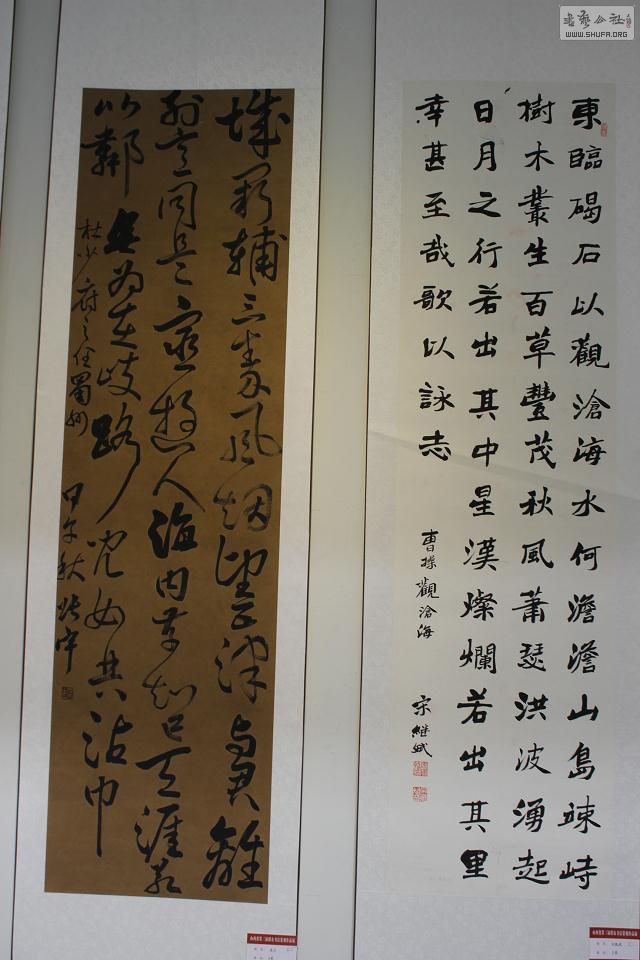 書藝公社
WWW.SHUFA.ORG
東臨碣石以觀滄海水何澹澹山島竦峙
樹木叢生百草豐茂秋風蕭瑟洪波湧起
日月之行若出其中星漢燦爛若出其里
幸甚至哉歌以詠志
曹操觀滄海
宋继
城阙辅三秦风烟望五津与君離
别意同是宦遊人海内存知己天涯若
比鄰無为在歧路兒女共沾巾
杜少府之任蜀州
甲午秋